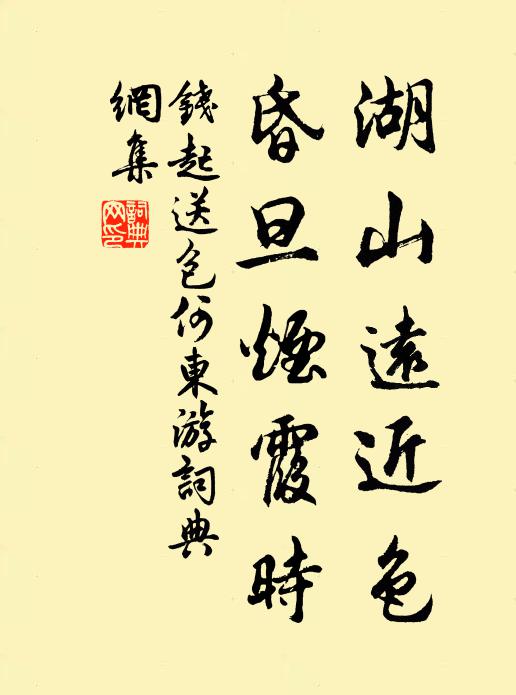 湖山遠近色
昏旦煙霞時
錢起送包何東游詞典
網集
詞典網印